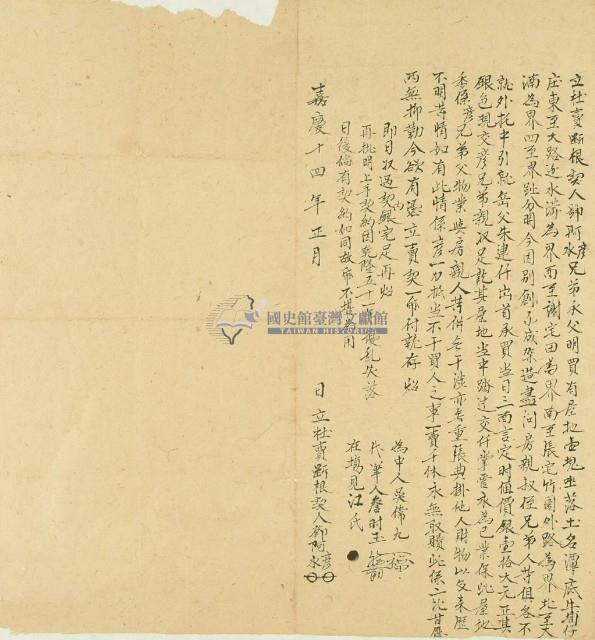 立杜賣斷根契人鄧阿彥永兄弟承父明買有屋地壹塊坐落土名潭底牛埔仔
庄東至大路逐水溝為界西至謝宅田為界南至張宅竹圍外路為界北至大
湳為界四至界趾分明今因別創不成架造盡问房親叔侄兄弟人等俱各不
就外托中引就岳父朱建仟出首承買當日三面言定时值價銀壹拾大元正其
銀色現交彥兄弟親収足訖其屋地当中踏过交仟掌管永為己業保此屋地
係彥兄弟父物業與房親人等俱各干涉亦無重張典掛他人財物以及来歷
不明等情如有此情係彥一力抵当不干買人之事一賣千休永無収贖此係二比甘愿
两無抑勒今欲有憑立賣契一帋付執存炤
即日収过契內銀完足再炤
再批明上手契約因乾隆五十一年擾乱失落
日後倘有契約如同故帋不堪為用
為中人吳偉九
代筆人詹时玉
在塲見江氏
嘉慶十四年正月 日立杜賣斷根契人鄧阿彥永
國史館臺灣文獻館
TAIWAN HISTORICA